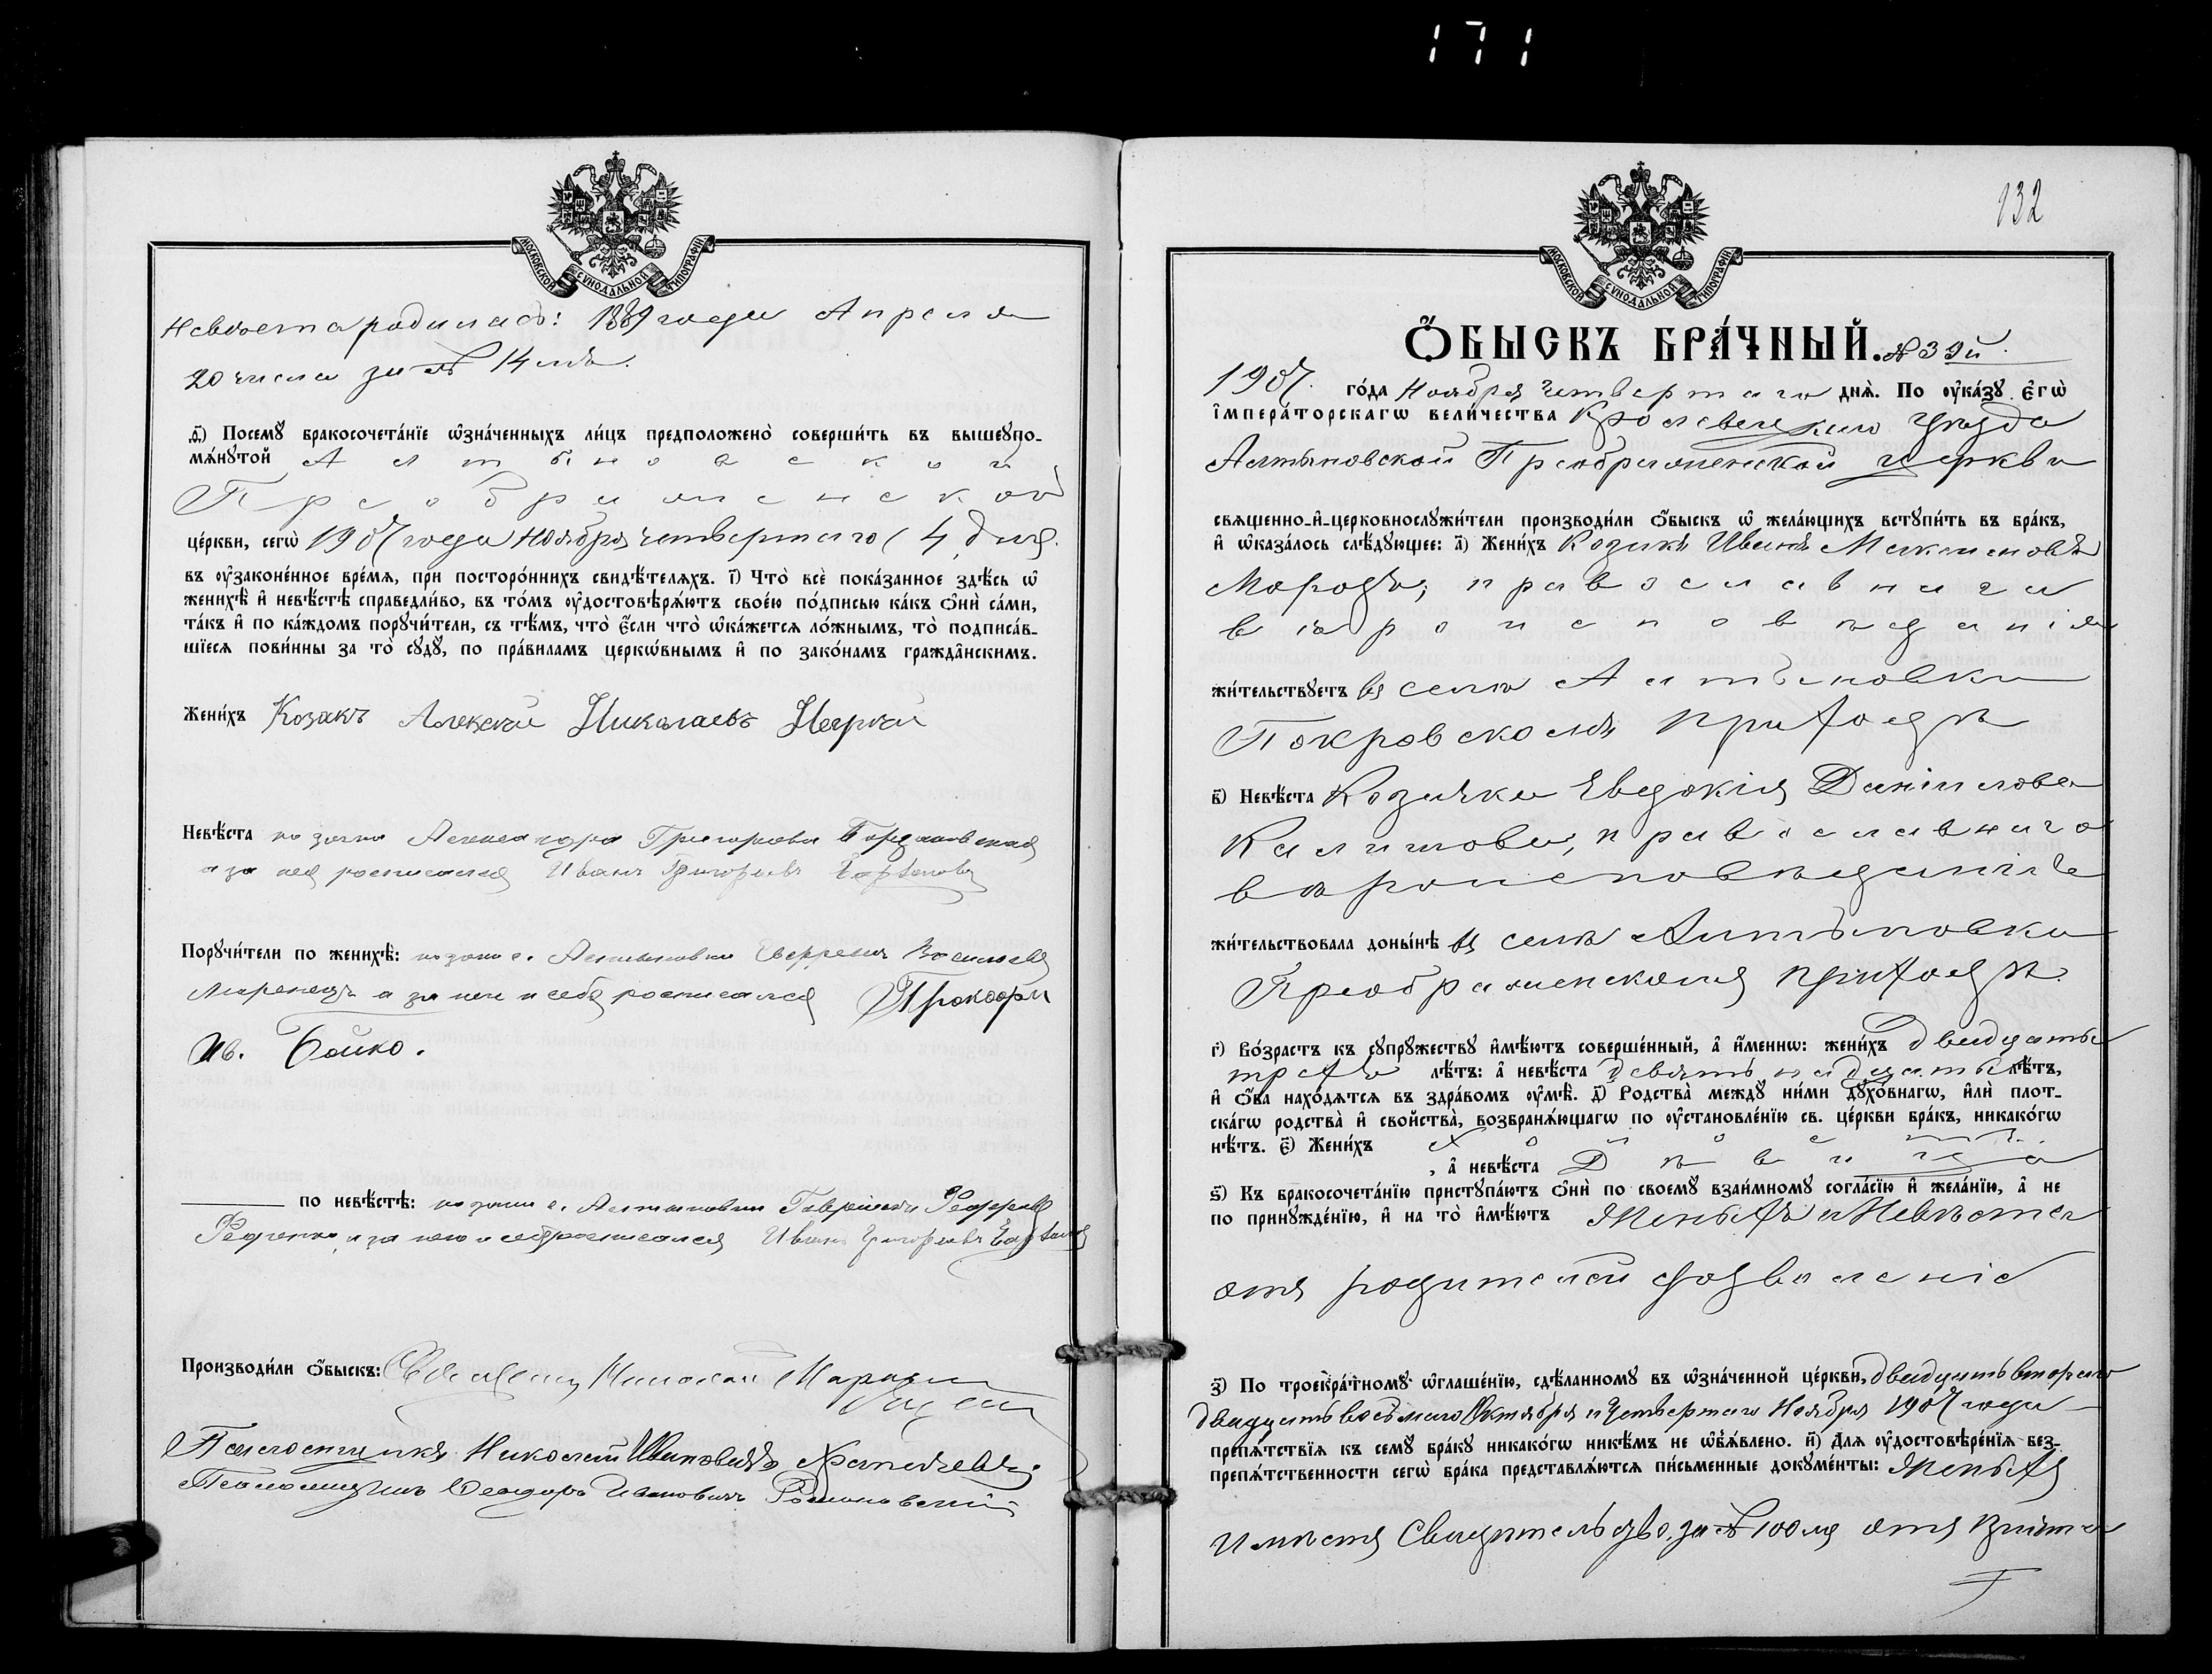 171
МОСКОВСКОЙ СѴНОДАЛЬНОЙ ТИПОГРАФІИ
Невѣста родилась: 1889 года Апреля
20 числа за № 14 мъ.
д҃) Посемꙋ бракосочета́нїе ѡ҆зна́ченныхъ ли́цъ предположено̀ соверши́ть въ вышеꙋпо-
мѧ́нꙋтой Алтыновской
Преображенской
це́ркви, сегѡ̀ 1907 года Ноября четвертаго (4) дня.
въ ᲂу҆законе́нное вре́мѧ, при посторо́ннихъ свидѣ́телѧхъ. і҃) Что̀ всѐ пока́занное здѣ́сь ѡ҆
женихѣ̀ и҆ невѣ́стѣ справедли́во, въ то́мъ ᲂу҆достовѣрѧ́ютъ свое́ю по́дписью ка́къ ѻ҆нѝ са́ми,
та́къ и҆ по ка́ждомъ порꙋчи́тели, съ тѣ́мъ, что̀ є҆́сли что̀ ѡ҆ка́жетсѧ ло́жнымъ, то̀ подписа́в-
шїесѧ пови́нны за то̀ сꙋдꙋ̀, по пра́виламъ церкѡ́внымъ и҆ по зако́намъ гражда̑нскимъ.
Жени́хъ Козакъ Алексей Николаевъ
Невѣ́ста козачка Александра Григориева
а за нея росписался Иванъ Григорьевъ
Порꙋчи́тели по женихѣ̀: козаки с. Алтыновки
а за него и себя росписался Прокофи
Ив. Бойко.
по невѣ́стѣ: козаки с. Алтыновки Гавриилъ
и за него и себя росписался Иванъ Григорьевъ
Производи́ли ѻ҆́быскъ: Священ. Николай
Псаломщикъ Николай Ивановичъ
Псаломщикъ Феодоръ Ивановичъ
132
МОСКОВСКОЙ СѴНОДАЛЬНОЙ ТИПОГРАФІИ
Ѻ҆́БЫСКЪ БРА́ЧНЫЙ. № 39й.
1907. го́да Ноября четвертаго днѧ̀. По ᲂу҆ка́зꙋ Є҆гѡ̀
І҆мпера́торскагѡ вели́чества Кролевецкаго уѣзда
Алтыновской Преображенской церкви
свѧщенно-и҆-церковнослꙋжи́тели производи́ли ѻ҆́быскъ ѡ҆ жела́ющихъ встꙋпи́ть въ бра́къ,
и҆ ѡ҆каза́лось слѣ́дꙋющее: а҃) Жени́хъ Козакъ Иванъ Максимовъ
Морозъ; православнаго
вѣроисповѣданія
жи́тельствꙋетъ въ селѣ Алтыновки
Покровскомъ приходѣ
в҃) Невѣ́ста Козачка Евдокія Даніилова
православнаго
вѣроисповѣданія
жи́тельствовала доны́нѣ въ селѣ Алтыновки
Преображенскомъ приходѣ.
г҃) Во́зрастъ къ сꙋпрꙋ́жествꙋ и҆мѣ́ютъ соверше́нный, а҆ и҆́меннѡ: жени́хъ двадцать
трехъ лѣ́тъ: а҆ невѣ́ста девятьнадцать лѣ́тъ,
и҆ ѻ҆́ба нахо́дѧтсѧ въ здра́вомъ ᲂу҆мѣ̀. д҃) Родства̀ междꙋ̀ ни́ми дꙋхо́внагѡ, и҆лѝ плот-
ска́гѡ родства̀ и҆ сво́йства, возбранѧ́ющагѡ по ᲂу҆становле́нїю св. це́ркви бра́къ, никако́гѡ
нѣ́тъ. є҃) Жени́хъ холостъ
, а҆ невѣ́ста Дѣвица
ѕ҃) Къ бракосочета́нїю пристꙋпа́ютъ ѻ҆нѝ по своемꙋ̀ взаи́мномꙋ согла́сїю и҆ жела́нїю, а҆ не
по принꙋжде́нїю, и҆ на то̀ и҆мѣ́ютъ Женихъ и Невѣста
отъ родителей дозволеніе
з҃) По троекра́тномꙋ ѡ҆глаше́нїю, сдѣ́ланномꙋ въ ѡ҆зна́ченной це́ркви, двадцать втораго
двадцать восьмаго Октября и четвертаго Ноября 1907 года
препѧ́тствїѧ къ семꙋ̀ бра́кꙋ никако́гѡ никѣ́мъ не ѡ҆б̾ѧ́влено. и҃) Длѧ ᲂу҆достовѣре́нїѧ без-
препѧ́тственности сегѡ̀ бра́ка представлѧ́ютсѧ пи́сьменные докꙋме́нты: Женихъ
имѣетъ Свидѣтельство, за № 100 мъ отъ